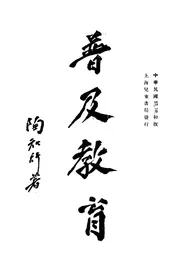 中華民國
初版
上海兒童書局發行
普及教育
陶知行著